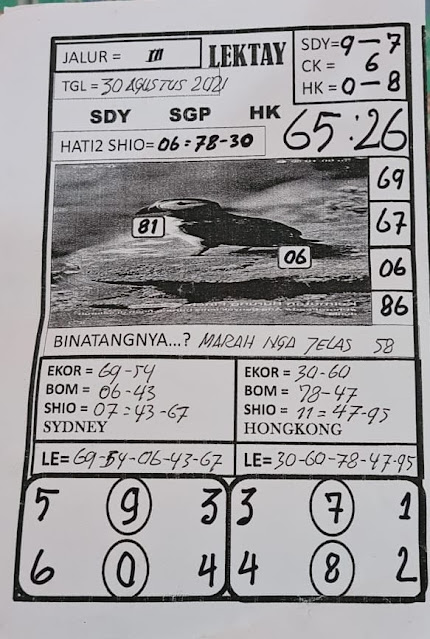 JALUR = III
LEKTAY
SDY=9-7
CK = 6
HK = 0-8
TGL = 30 AGUSTUS 2021
SDY SGP HK
65:26
HATI2 SHIO= 06 = 78-30
69
81
67
06
06
86
BINATANGNYA...? MARAH NGA JELAS 58
EKOR = 69-54
BOM = 06-43
SHIO = 07 = 43-67
SYDNEY
EKOR = 30-60
BOM = 78-47
SHIO = 11 = 47-95
HONGKONG
LE= 69-54-06-43-67
LE= 30-60-78-47-95
5 9 3 3 7 1
6 0 4 4 8 2